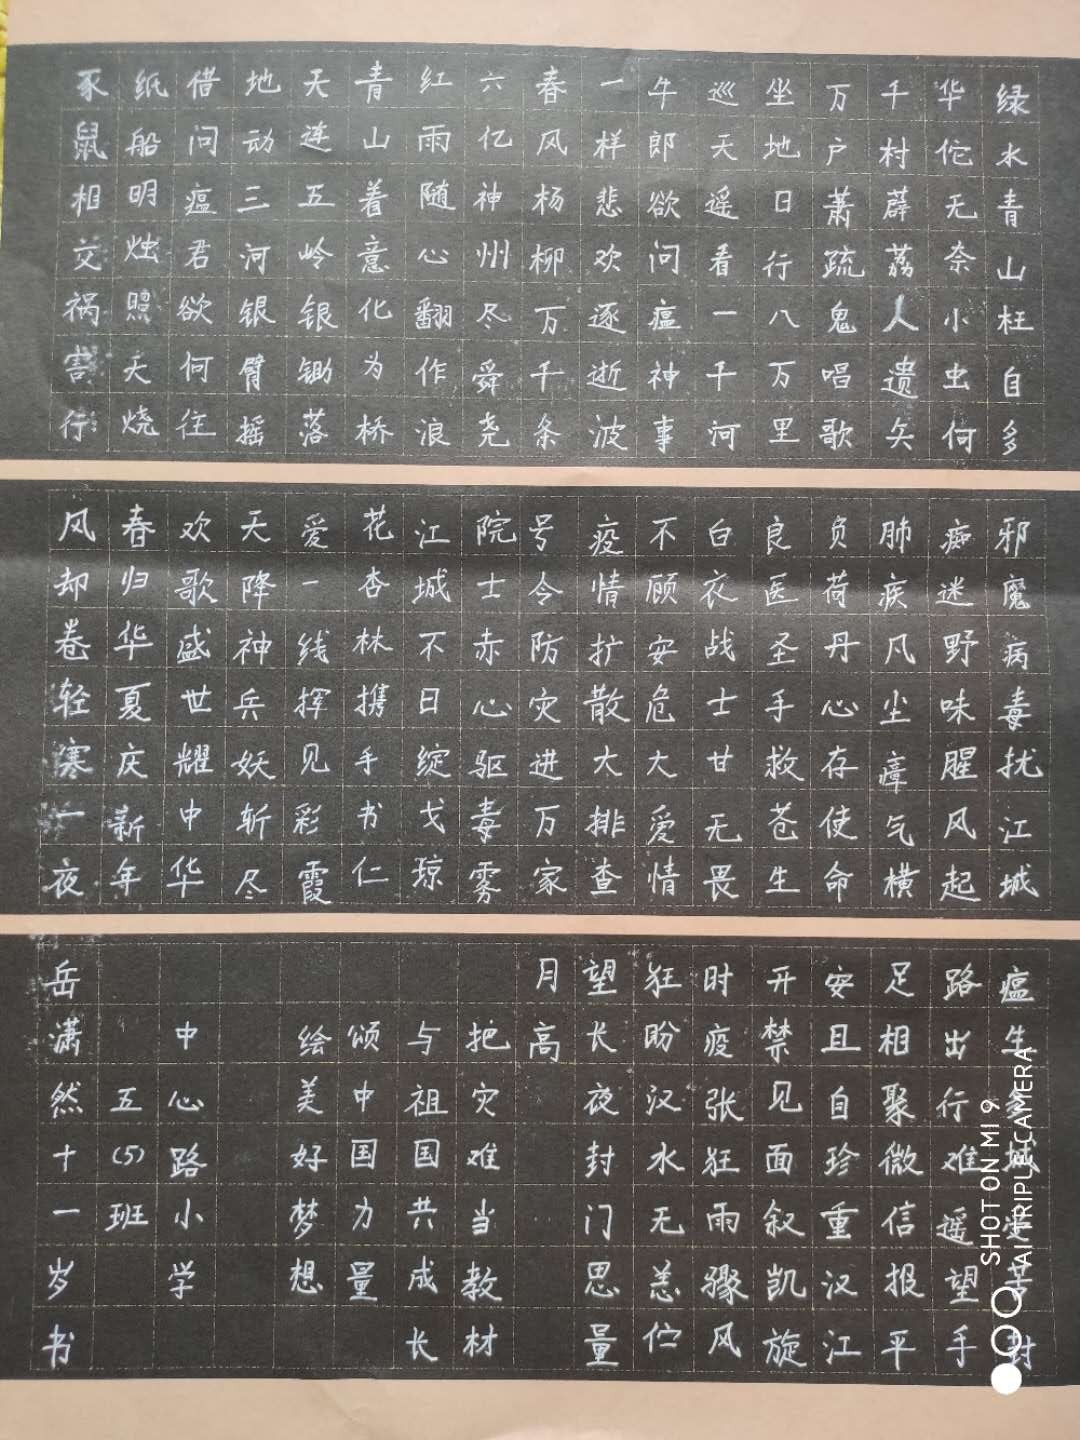 绿水青山枉自多
华佗无奈小虫何
千村薜荔人遗矢
万户萧疏鬼唱歌
坐地日行八万里
巡天遥看一千河
牛郎欲问瘟神事
一样悲欢逐逝波
春风杨柳万千条
六亿神州尽舜尧
红雨随心翻作浪
青山着意化为桥
天连五岭银锄落
地动三河银臂摇
借问瘟君欲何往
纸船明烛照天烧
豕鼠相交祸害行
邪魔病毒扰江城
痴迷野味腥风起
肺疾凡尘瘴气横
负荷丹心存使命
良医圣手救苍生
白衣战士甘无畏
不顾安危大爱情
疫情扩散大排查
号令防灾进万家
院士赤心驱毒雾
江城不日绽戈琼
花杏林携手书仁
爱一线挥见彩霞
天降神兵妖斩尽
欢歌盛世耀中华
春归华夏庆新年
风却卷轻寒一夜
瘟生城苦封
路出行难遥望手
足相聚微信报平
安且自珍重汉江
开禁见面叙凯旋
时疫张狂雨骤风
狂盼汉水无恙伫
望长夜封门思量
月高
把灾难当教材
与祖国共成长
颂中国力量
绘美好梦想
中心路小学
五(5)班
岳潇然十一岁书
SHOT ON MI 9
AI TRIPLE CAMERA